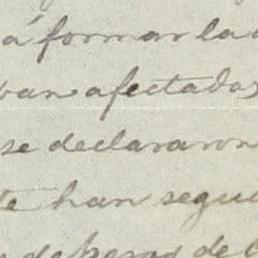 á formar la
ban afectados
se declararon
te han segui